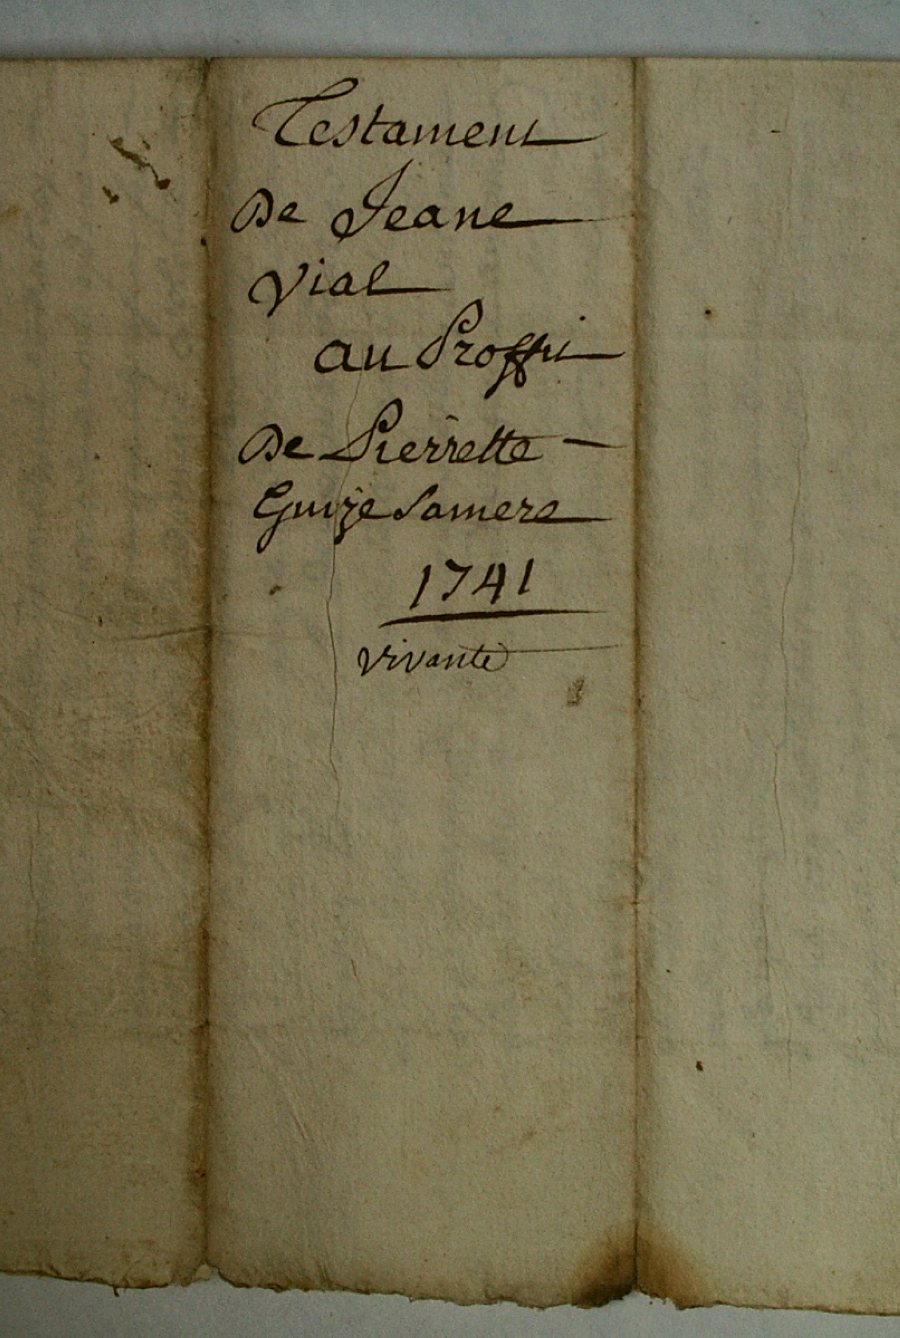 Testament
De Jeane
Vial
au Proffit
De Pierrette
Guize Samere
1741
vivante